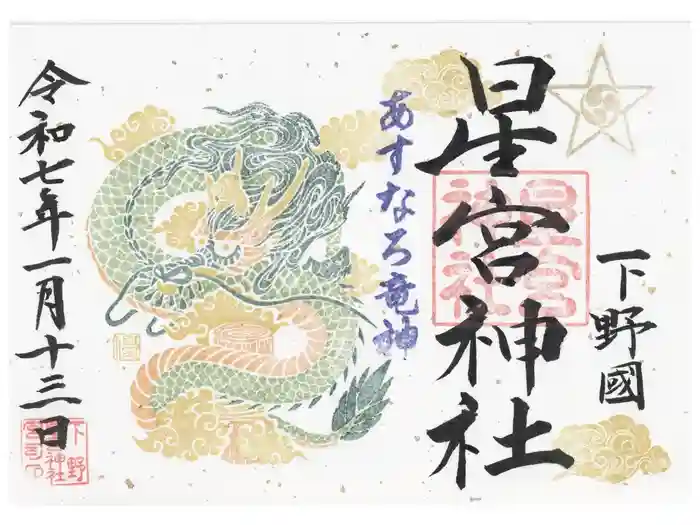 下野國
星宮神社
星宮神社
あすなろ竜神
令和七年一月十三日